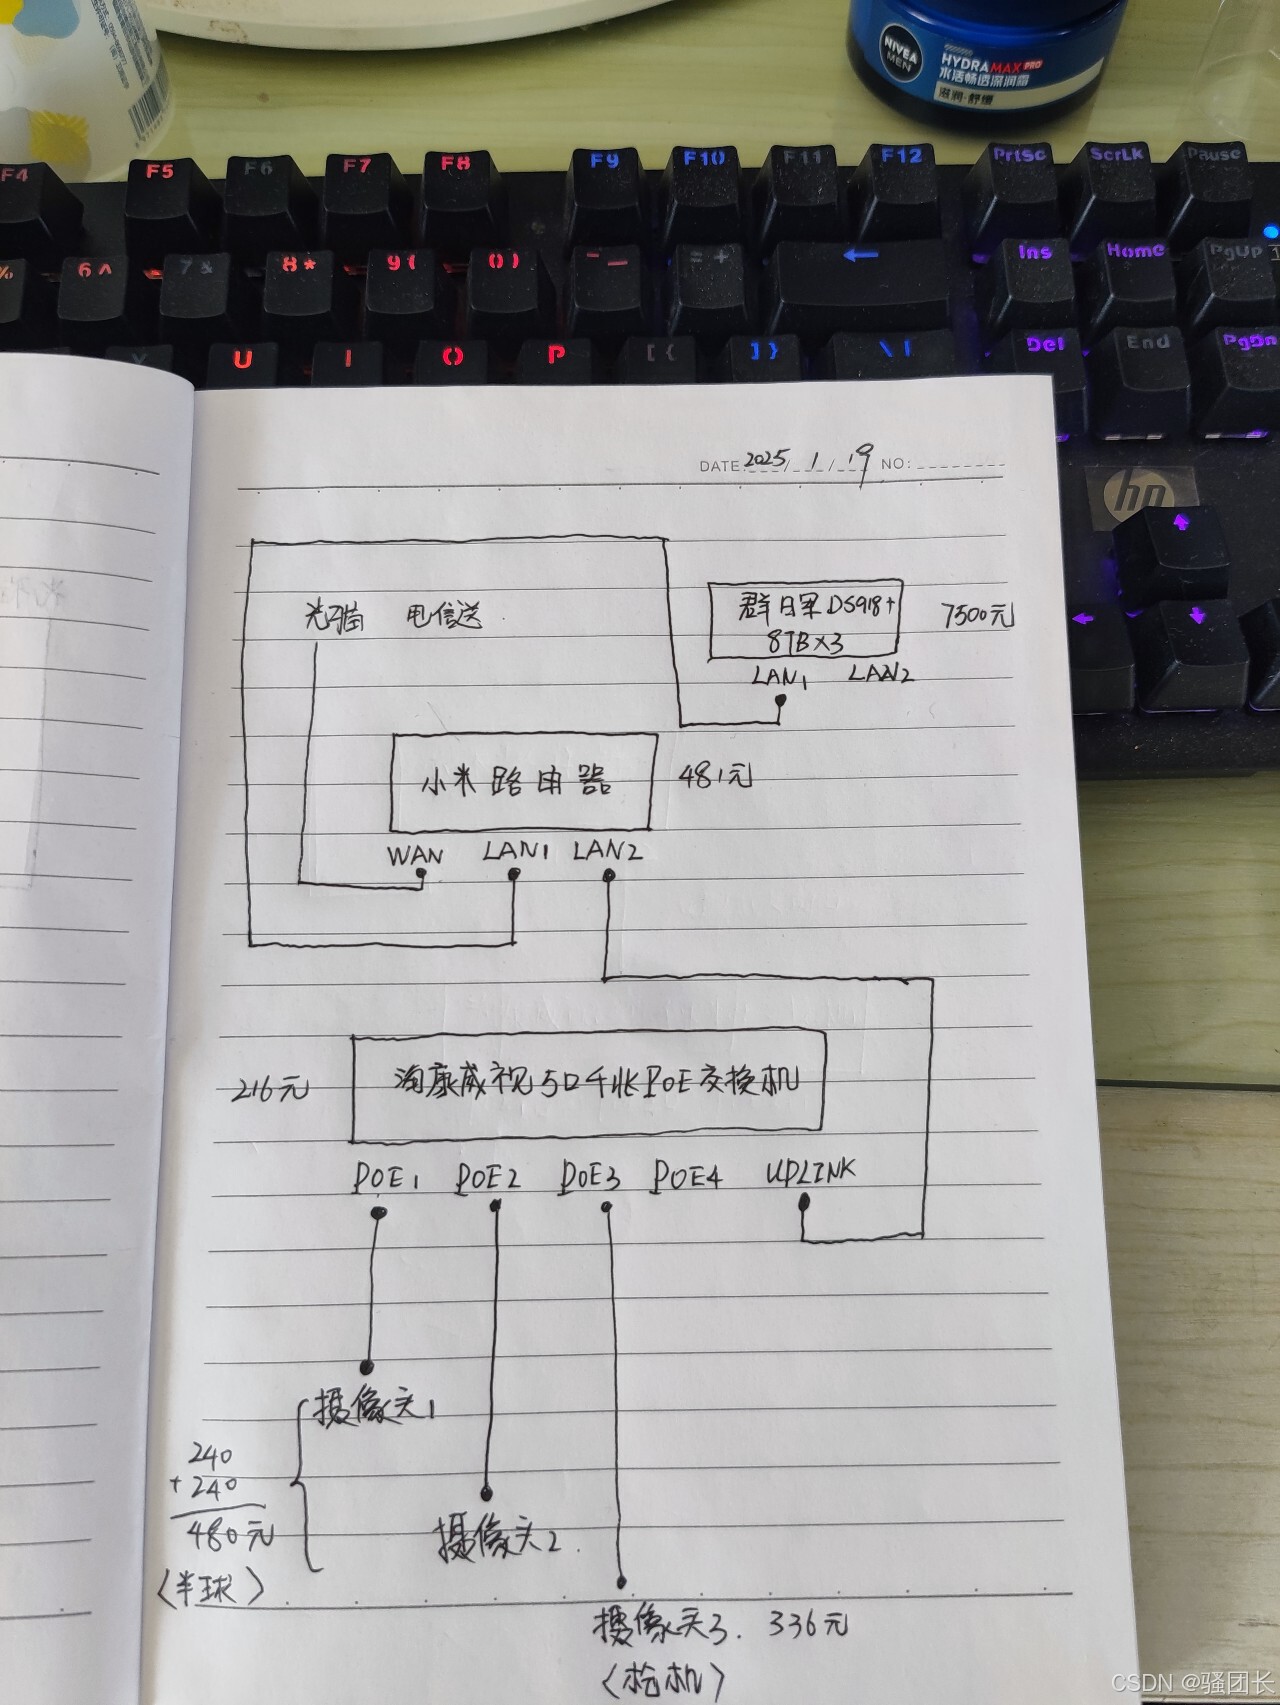 NIVEA
MEN
HYDRAMAX PRO
水活畅透深润霜
滋润·舒缓
F4 F5 F6 F7 F8 F9 F10 F11 F12 PrtSc ScrLk Pause
% 6 ^ 7 & 8 * 9 ( 0 ) - — = + ← Ins Home PgUp
Y U I O P [ { ] } \ | Del End PgDn
hp
DATE 2025/1/19 NO:
光猫 电信送
群晖DS918+
8TB×3
7500元
LAN1 LAN2
小米路由器
481元
WAN LAN1 LAN2
216元
海康威视5口千兆POE交换机
POE1 POE2 POE3 POE4 UPLINK
摄像头1
240
+ 240
480元
(半球)
摄像头2.
摄像头3. 336元
(枪机)
CSDN @骚团长